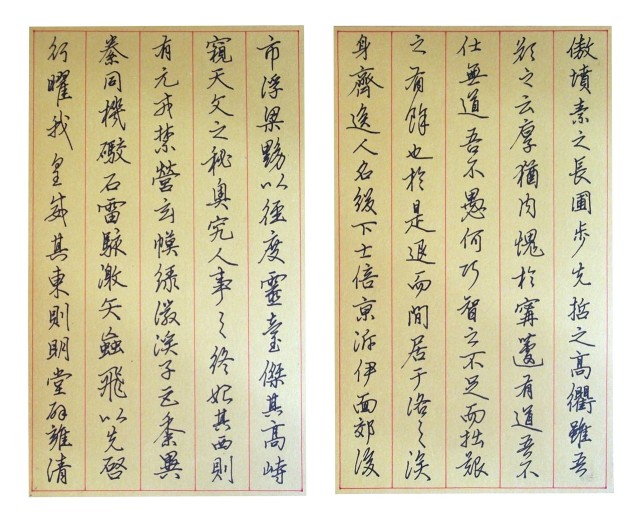 傲墳素之長圃步先哲之高衢雖吾
顏之云厚猶内愧於甯蘧有道吾不
仕無道吾不愚何巧智之不足而拙艱
之有餘也於是退而閒居于洛之涘
身齊逸人名綴下士倍京泝伊面郊後
市浮梁黝以徑度靈臺傑其高峙
窺天文之秘奧究人事之終始其西則
有元戎禁營玄幙綠徽溪子巨黍異
絭同機礮石雷駭激矢蝱飛以先啓
行曜我皇威其東則明堂辟雍清